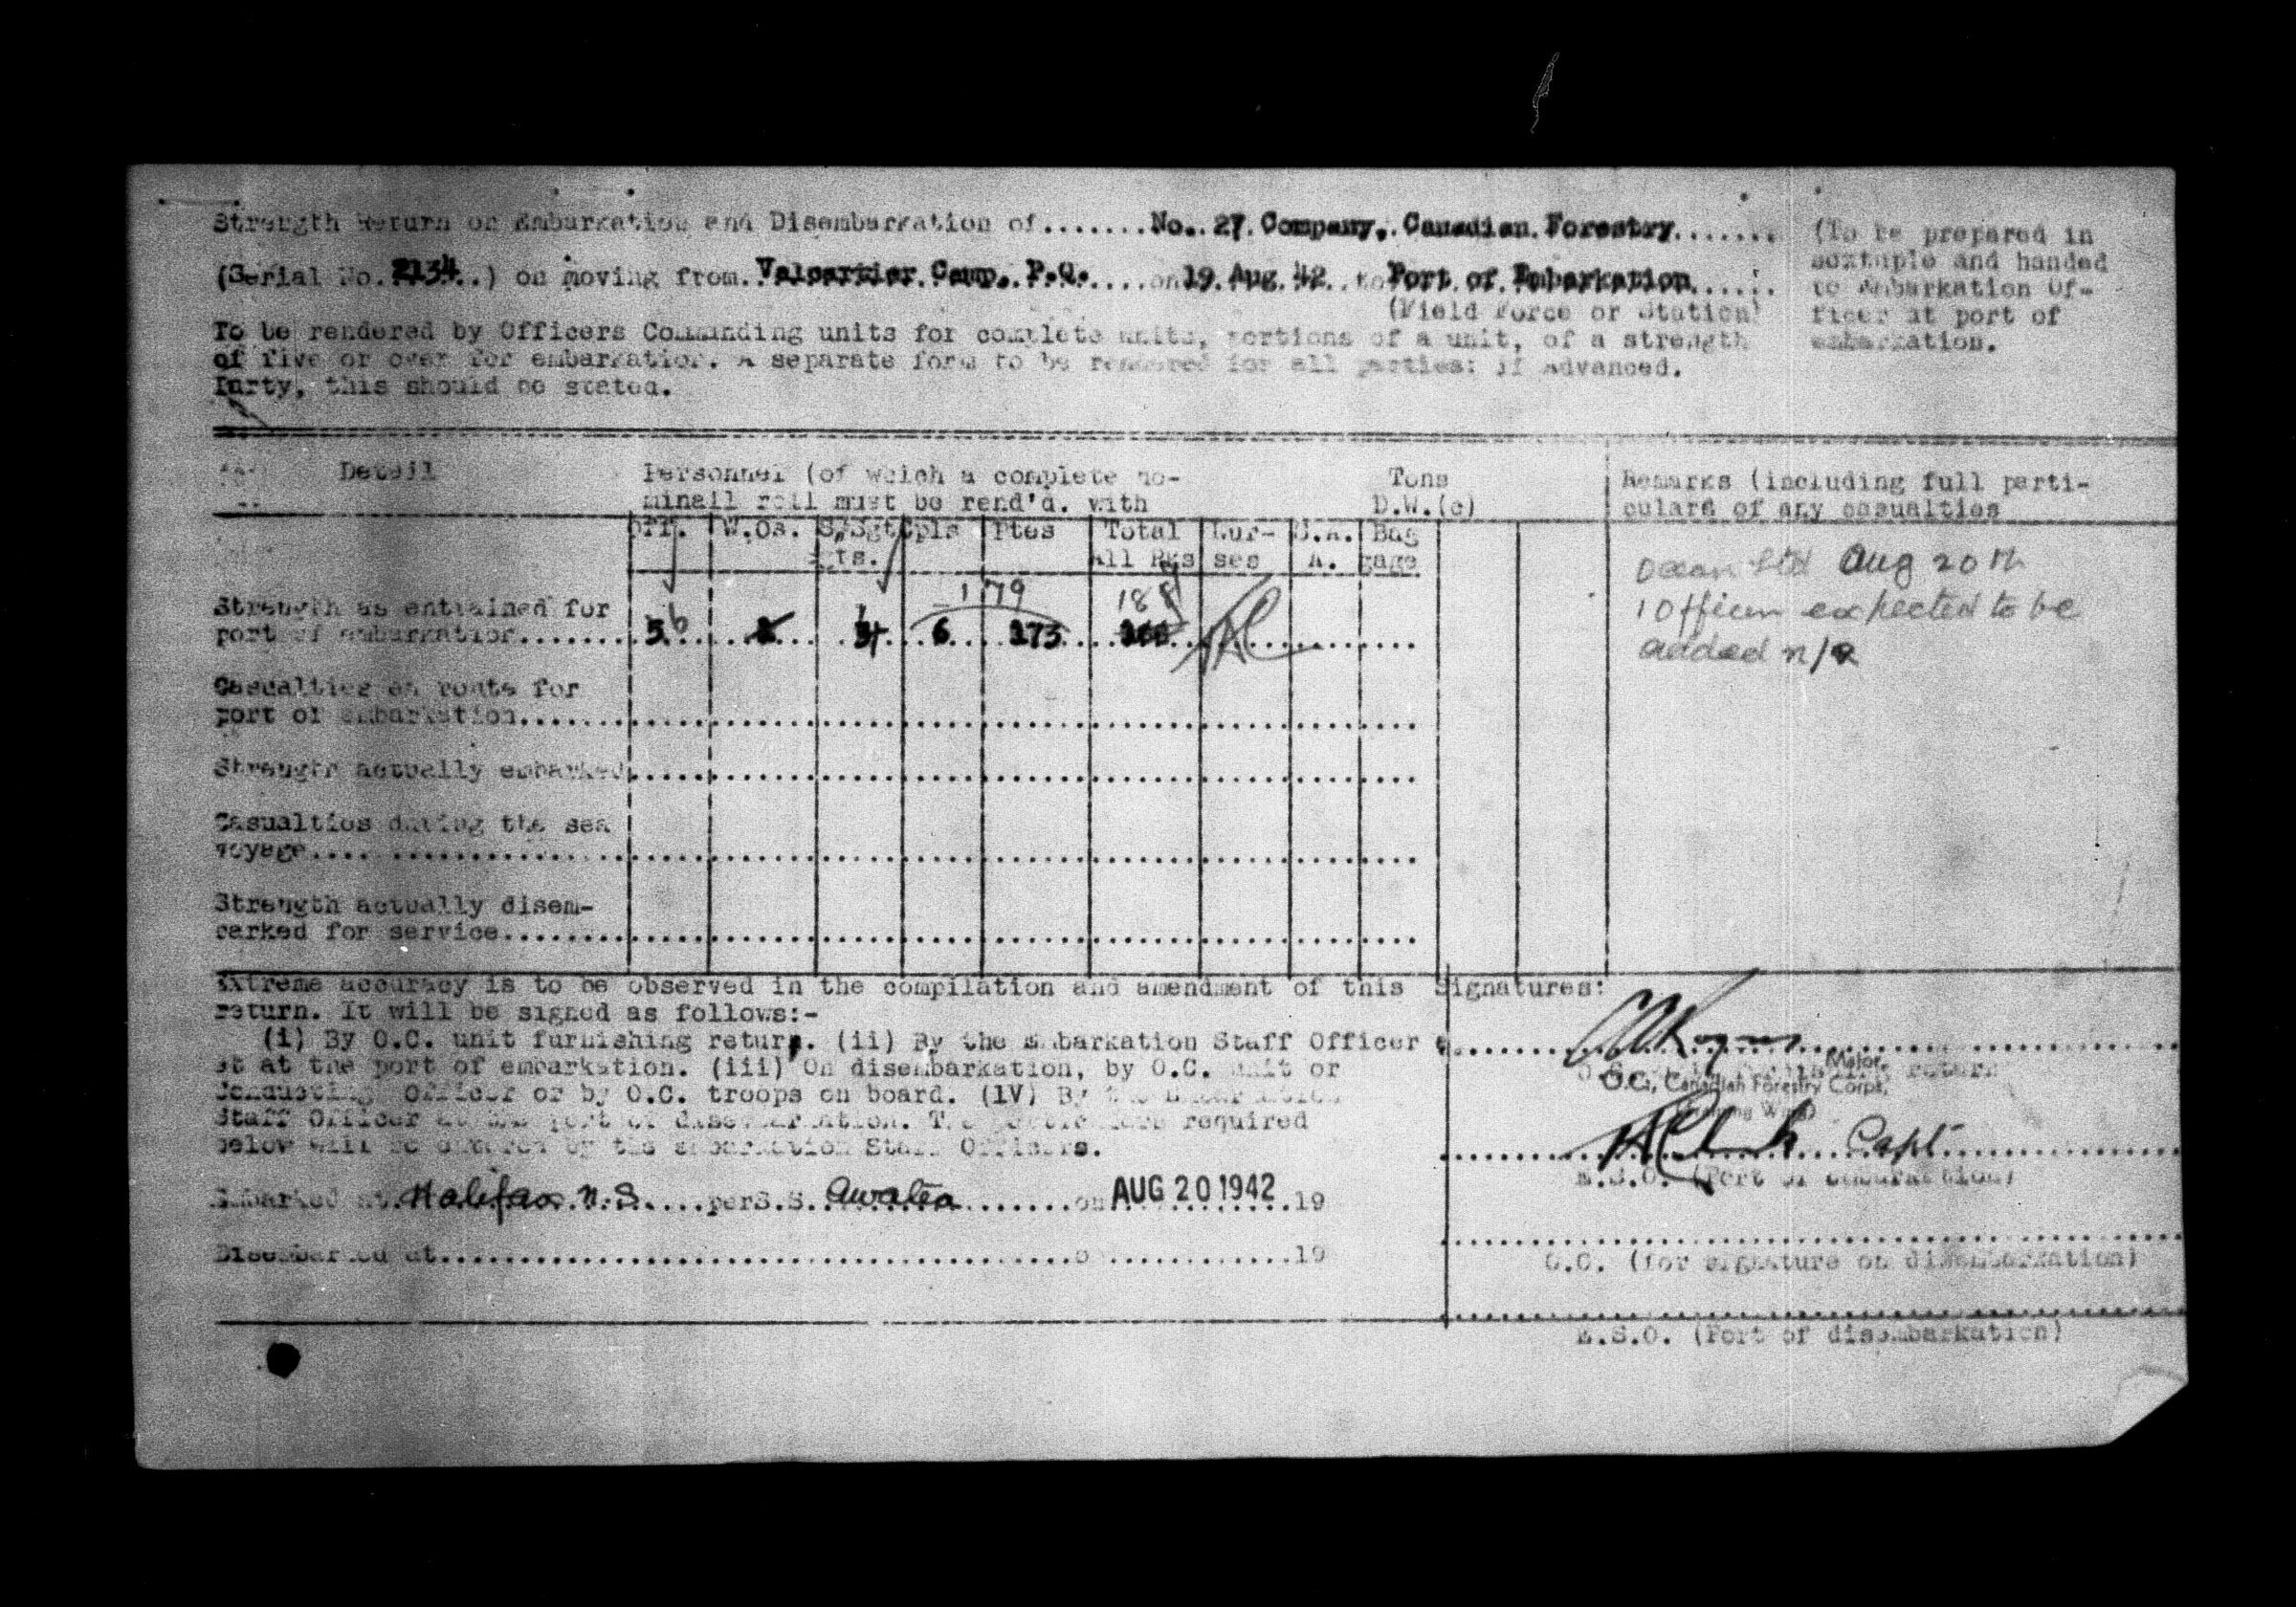 Strength Return on Embarkation and Disembarkation of.......No. 27 Company, Canadian Forestry.......
(Serial No. 2134..) on moving from..Valcartier Camp, P.Q.....on 19 Aug. 42 ..to Port of Embarkation......
(Field Force or Station)
To be rendered by Officers Commanding units for complete units, portions of a unit, of a strength
of five or over for embarkation. A separate form to be rendered for all parties: if Advanced.
Party, this should be stated.
(To be prepared in
sextuple and handed
to Embarkation Of-
ficer at port of
embarkation.
Detail
Personnel (of which a complete no-
minall roll must be rend'd. with
Tons
D.W.(c)
Remarks (including full parti-
culars of any casualties
Off. W.Os. S/Sgt Cpls Ptes Total Nur- S.A. Bag
gts. All Rks ses A. gage
179 188
Strength as entrained for
port of embarkation....... 5 6 4 6 173
Casualties en route for
port of embarkation.......
Strength actually embarked
Casualties during the sea
voyage....
Strength actually disem-
barked for service.......
Aug 20th
1 Officer expected to be
added n/r
Extreme accuracy is to be observed in the compilation and amendment of this
return. It will be signed as follows:-
(i) By O.C. unit furnishing return. (ii) By the Embarkation Staff Officer
at the port of embarkation. (iii) On disembarkation, by O.C. unit or
Conducting Officer or by O.C. troops on board. (IV) By the Embarkation
Staff Officer at the port of disembarkation. The particulars required
below will be entered by the Embarkation Staff Officers.
Embarked at Halifax. N.S.....per S.S. Awatea.......on AUG 20 1942 .19
Disembarked at..........o ..........19
Signatures:
Major,
O.C., Canadian Forestry Corps,
return
Capt
E.S.O. (Port of embarkation)
O.C. (for signature on disembarkation)
E.S.O. (Port of disembarkation)